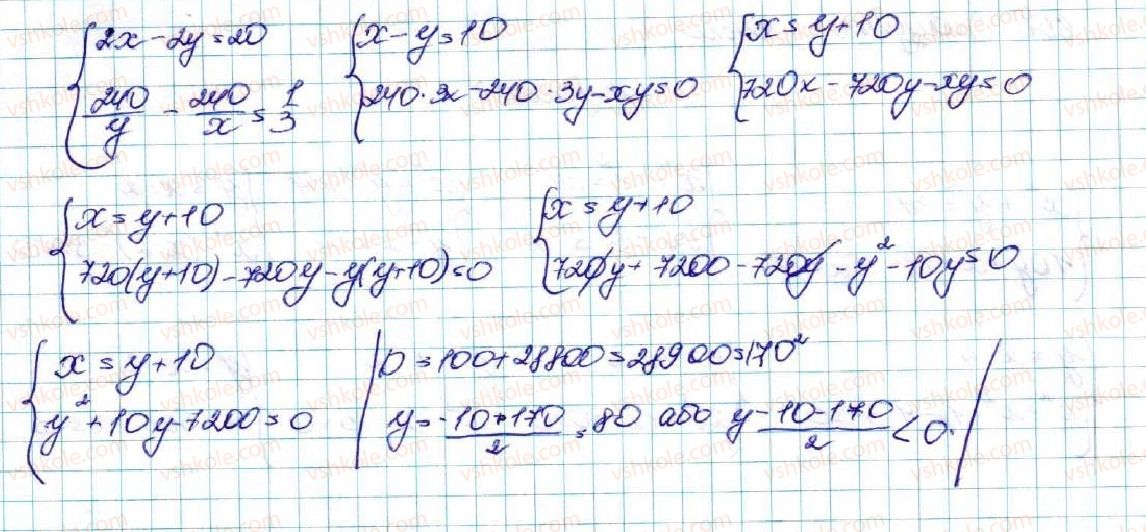 {2x - 2y = 20
240/y - 240/x = 1/3
{x - y = 10
240·3x - 240·3y - xy = 0
{x = y + 10
720x - 720y - xy = 0
{x = y + 10
720(y+10) - 720y - y(y+10) = 0
{x = y + 10
720y + 7200 - 720y - y² - 10y = 0
{x = y + 10
y² + 10y - 7200 = 0
| D = 100 + 28800 = 28900 = 170²
y = -10+170/2 = 80 або y -10-170/2 < 0. |
vshkole.com